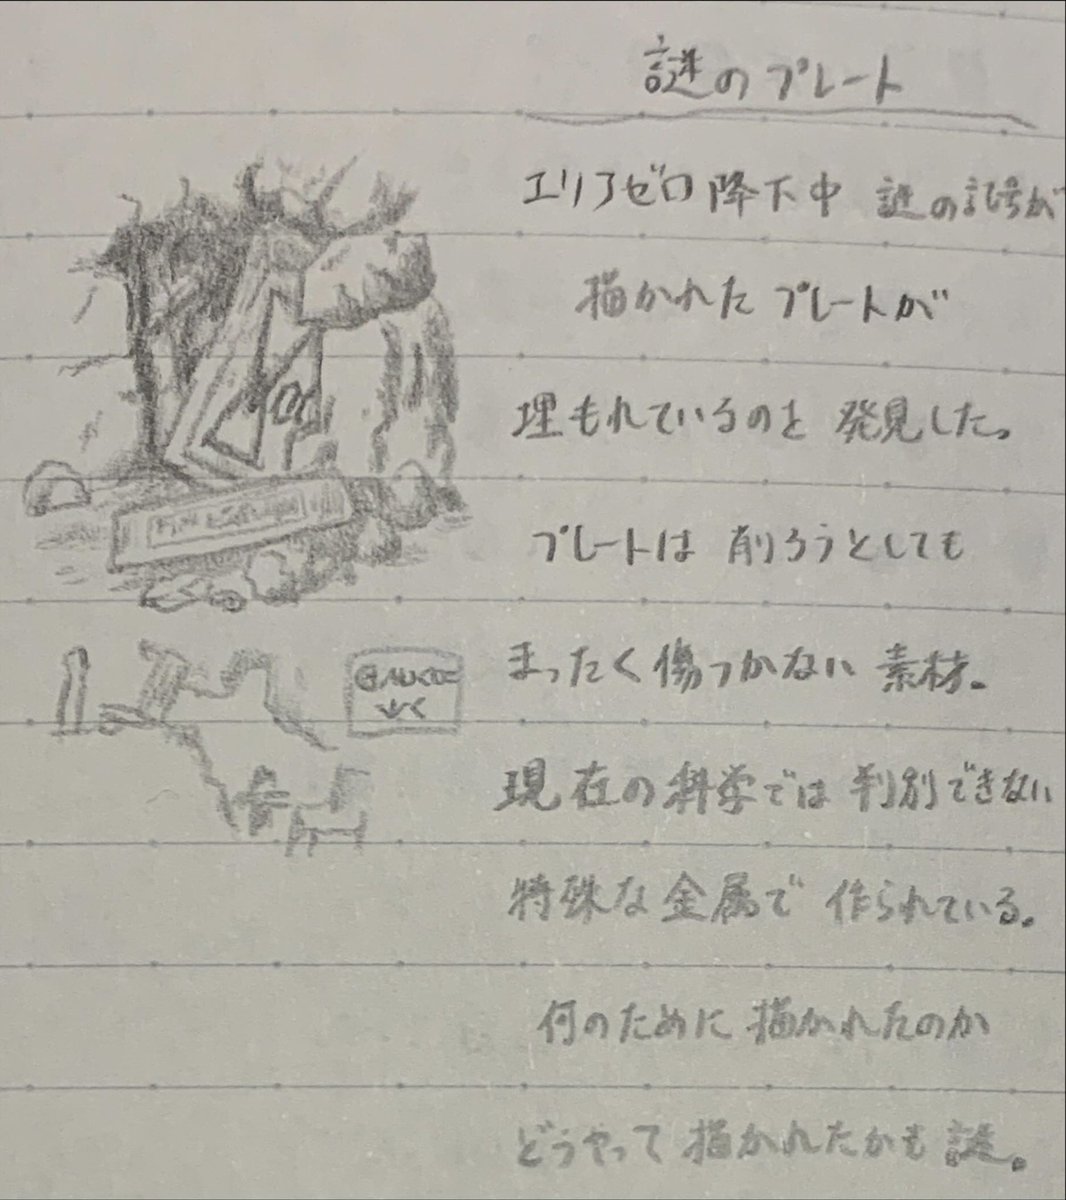 謎のプレート
エリアゼロ降下中 謎の記号が
描かれたプレートが
埋もれているのを 発見した。
プレートは 削ろうとしても
まったく傷つかない 素材。
現在の科学では 判別できない
特殊な金属で 作られている。
何のために 描かれたのか
どうやって 描かれたかも 謎。